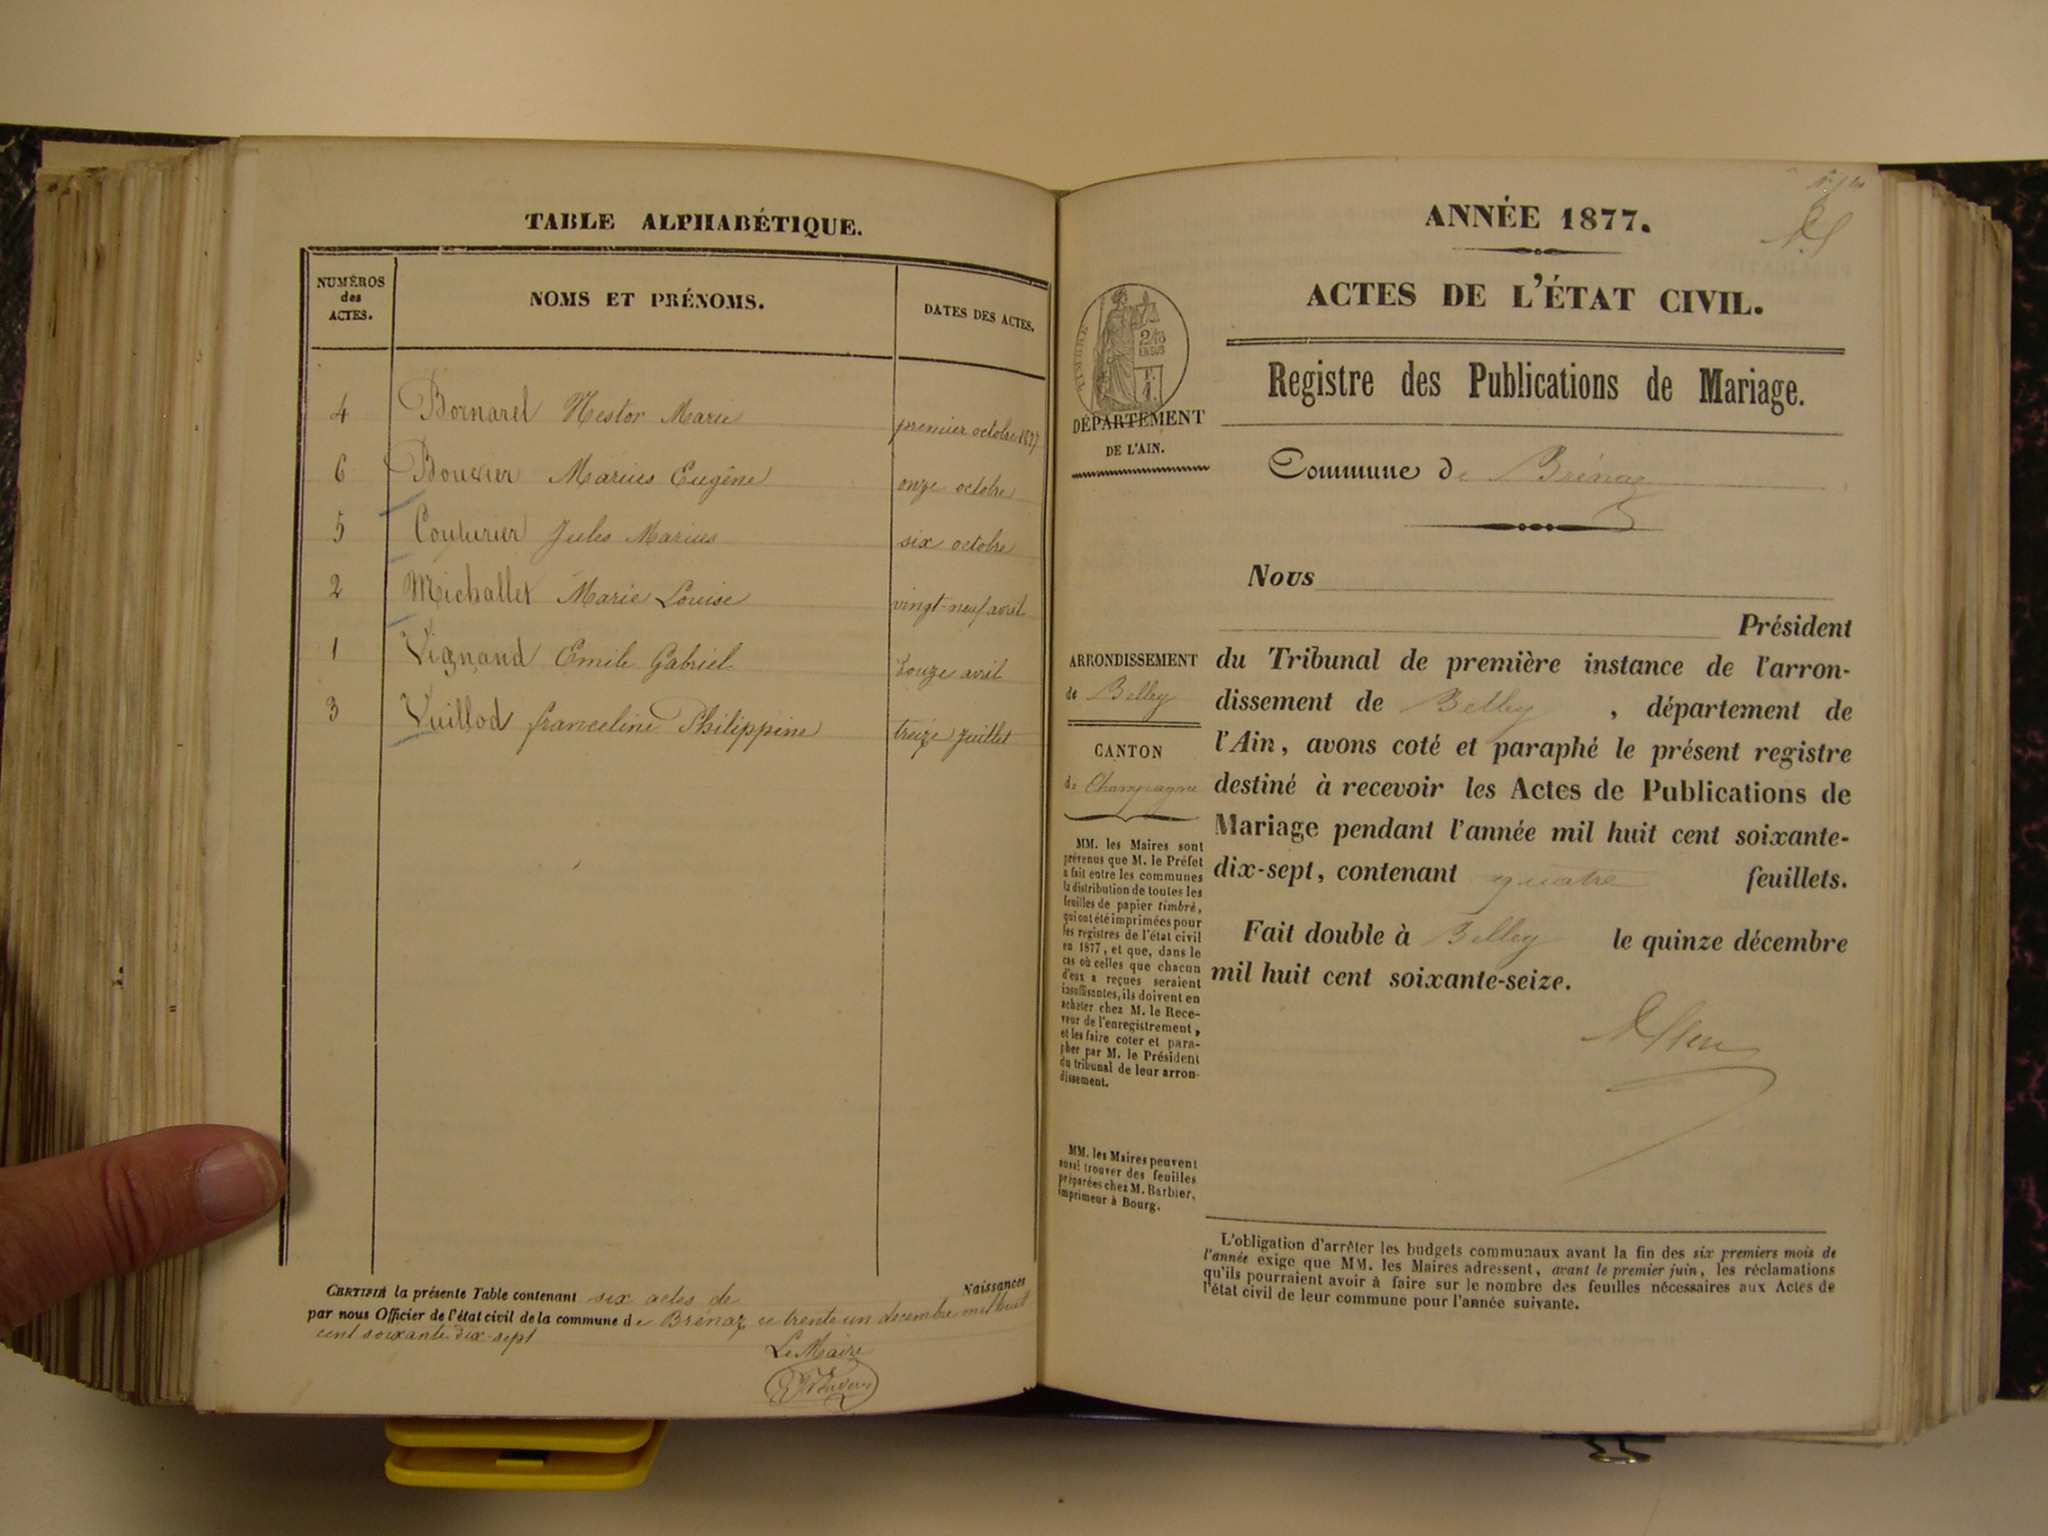 TABLE ALPHABÉTIQUE.
NUMÉROS
des
ACTES.
NOMS ET PRÉNOMS.
DATES DES ACTES.
4 Bornarel Nestor Marie premier octobre 1877
6 Bouvier Marius Eugène onze octobre
5 Couturier Jules Marius six octobre
2 Michallet Marie Louise vingt-neuf avril
1 Vignand Emile Gabriel douze avril
3 Vuillod franceline Philippine treize Juillet
CERTIFIÉ la présente Table contenant six actes de Naissances
par nous Officier de l'état civil de la commune de Brénaz ce trente un decembre mil huit
cent soixante dix-sept
Le Maire
ANNÉE 1877.
ACTES DE L'ÉTAT CIVIL.
Registre des Publications de Mariage.
TIMBRE
2/10
EN SUS
DÉPARTEMENT
DE L'AIN.
Commune de Brénaz
Nous
Président
du Tribunal de première instance de l'arron-
dissement de Belley, département de
l'Ain, avons coté et paraphé le présent registre
destiné à recevoir les Actes de Publications de
Mariage pendant l'année mil huit cent soixante-
dix-sept, contenant quatre feuillets.
Fait double à Belley le quinze décembre
mil huit cent soixante-seize.
ARRONDISSEMENT
de Belley
CANTON
de Champagne
MM. les Maires sont
prévenus que M. le Préfet
a fait entre les communes
la distribution de toutes les
feuilles de papier timbré,
qui ont été imprimées pour
les registres de l'état civil
en 1877, et que, dans le
cas où celles que chacun
d'eux a reçues seraient
insuffisantes, ils doivent en
acheter chez M. le Rece-
veur de l'enregistrement,
et les faire coter et para-
pher par M. le Président
du tribunal de leur arron-
dissement.
MM. les Maires peuvent
aussi trouver des feuilles
préparées chez M. Barbier,
imprimeur à Bourg.
L'obligation d'arrêter les budgets communaux avant la fin des six premiers mois de
l'année exige que MM. les Maires adressent, avant le premier juin, les réclamations
qu'ils pourraient avoir à faire sur le nombre des feuilles nécessaires aux Actes de
l'état civil de leur commune pour l'année suivante.